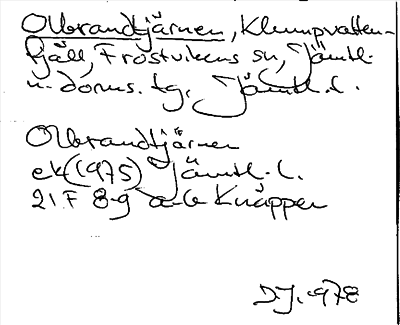 Olbrandtjärnen, Klumpvatten-
fjäll, Frostvikens sn, Jämtl.
n. doms. tg. Jämtl. l.
Olbrandtjärnen
ek (1975) Jämtl. l.
21 F 8-g a-b Knäppen
DJ. 1978